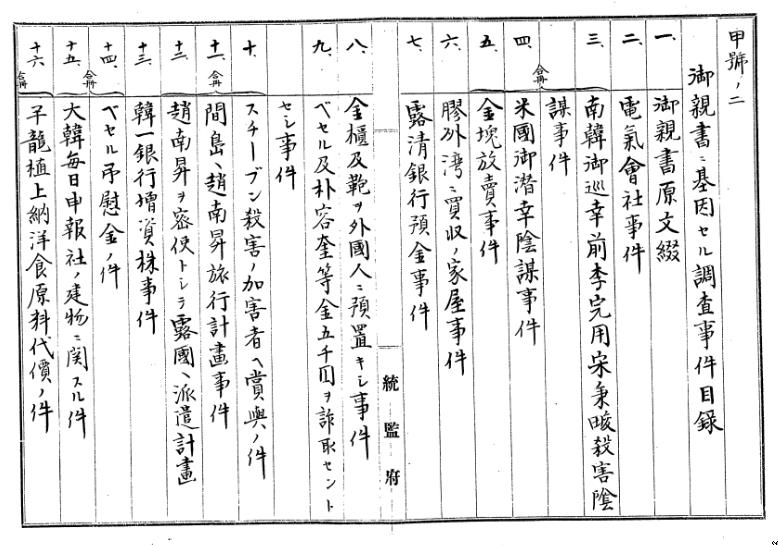 甲號ノ二
御親書ニ基因セル調査事件目錄
一、御親書原文綴
二、電氣會社事件
三、南韓御巡幸前李完用宋秉畯殺害陰
謀事件
四、米國御潜幸陰謀事件
合冊
五、金塊放賣事件
六、膠州湾ニ買収ノ家屋事件
七、露清銀行預金事件
統監府
八、金櫃及鞄ヲ外國人ニ預置キシ事件
九、ベセル及朴容奎等ノ金五千囙ヲ詐取セント
セシ事件
十、スチーブン殺害ノ加害者ヘ賞與ノ件
十一、間島ヘ趙南昇旅行計畫事件
合冊
十二、趙南昇ヲ密使トシテ露國ヘ派遣計畫
十三、韓一銀行增資株事件
十四、ベセル弔慰金ノ件
合冊
十五、大韓每日申報社ノ建物ニ関スル件
十六、子龍植上納洋食原料代價ノ件
合冊